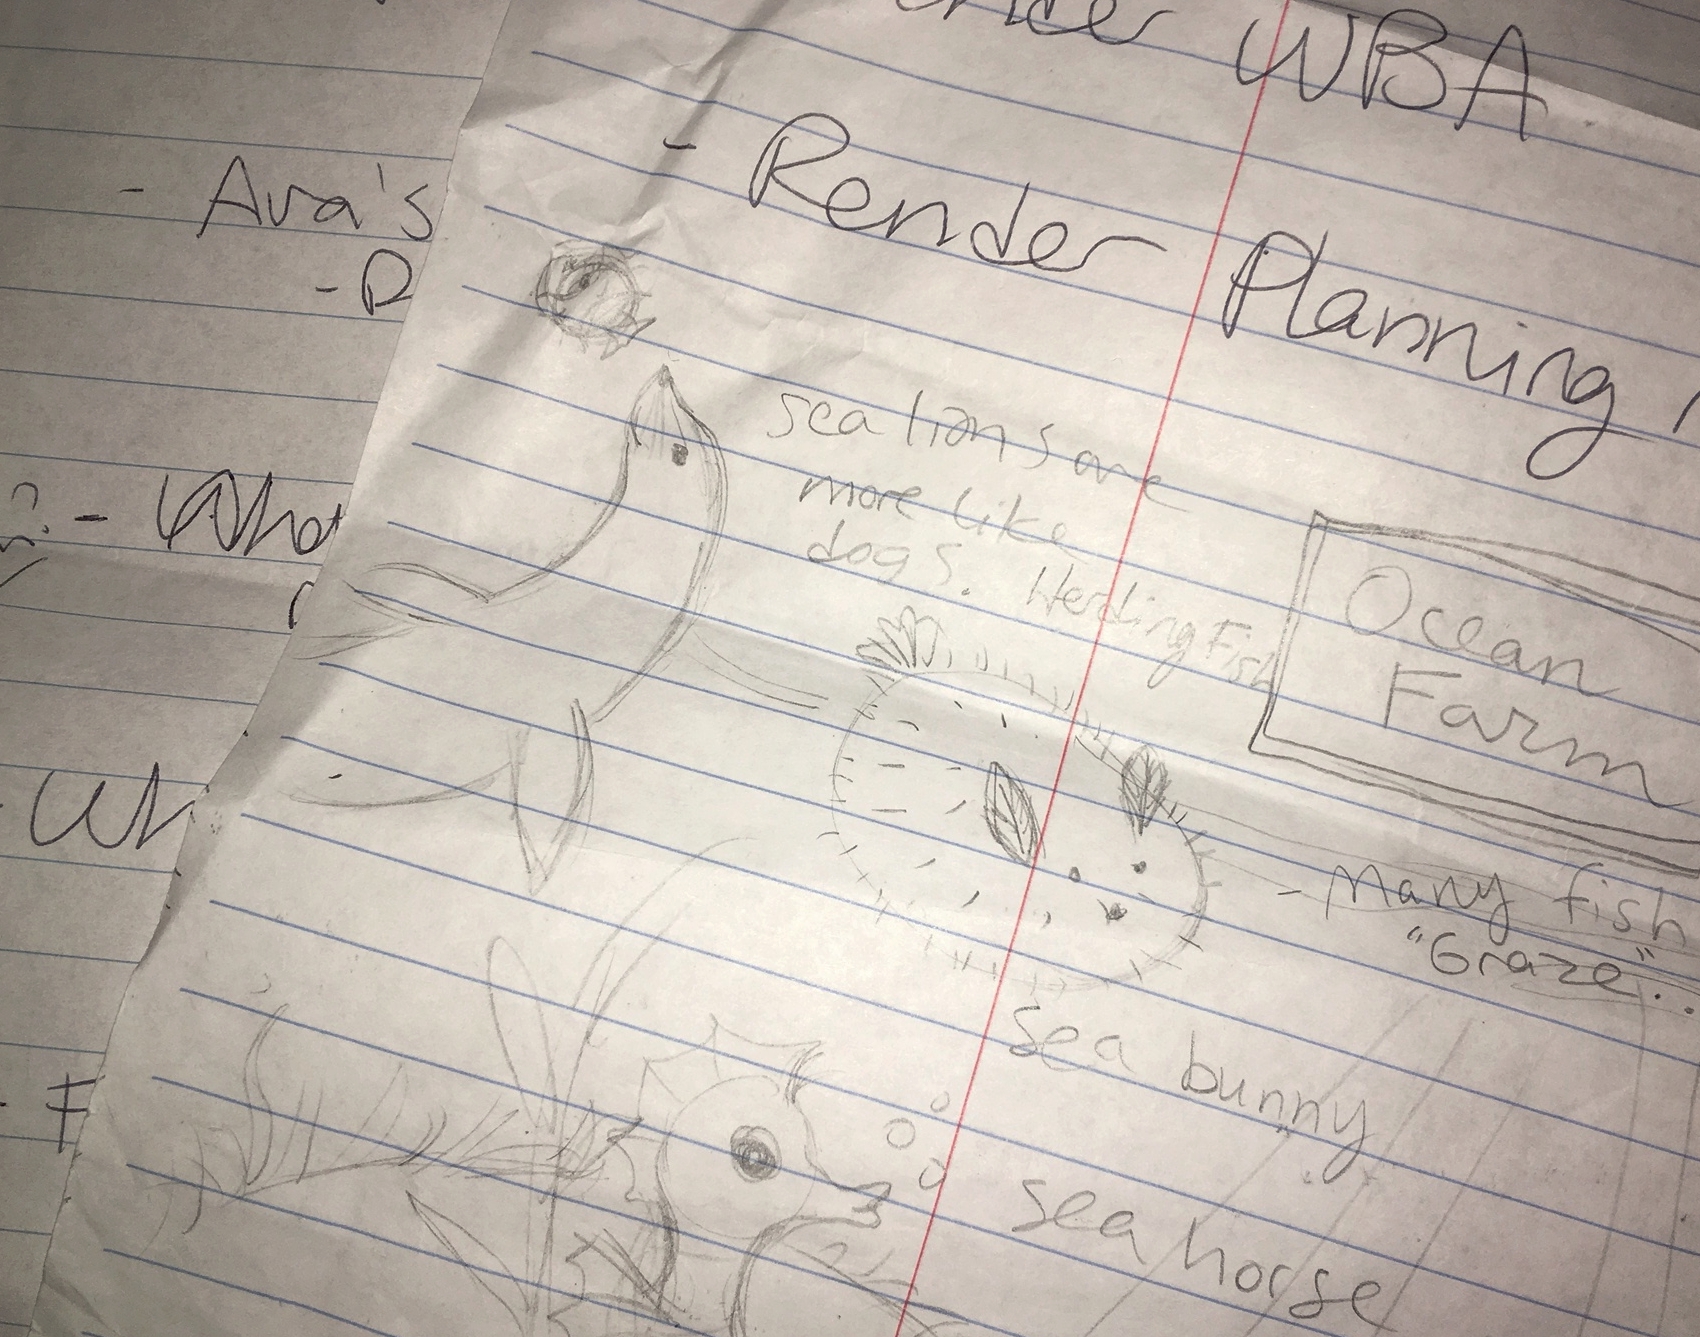 WBA
- Render Planning
- Ava's
sea lions are
more like
dogs. Herding Fish
- What
Ocean
Farm
- Many fish
"Graze"..
sea bunny
sea horse